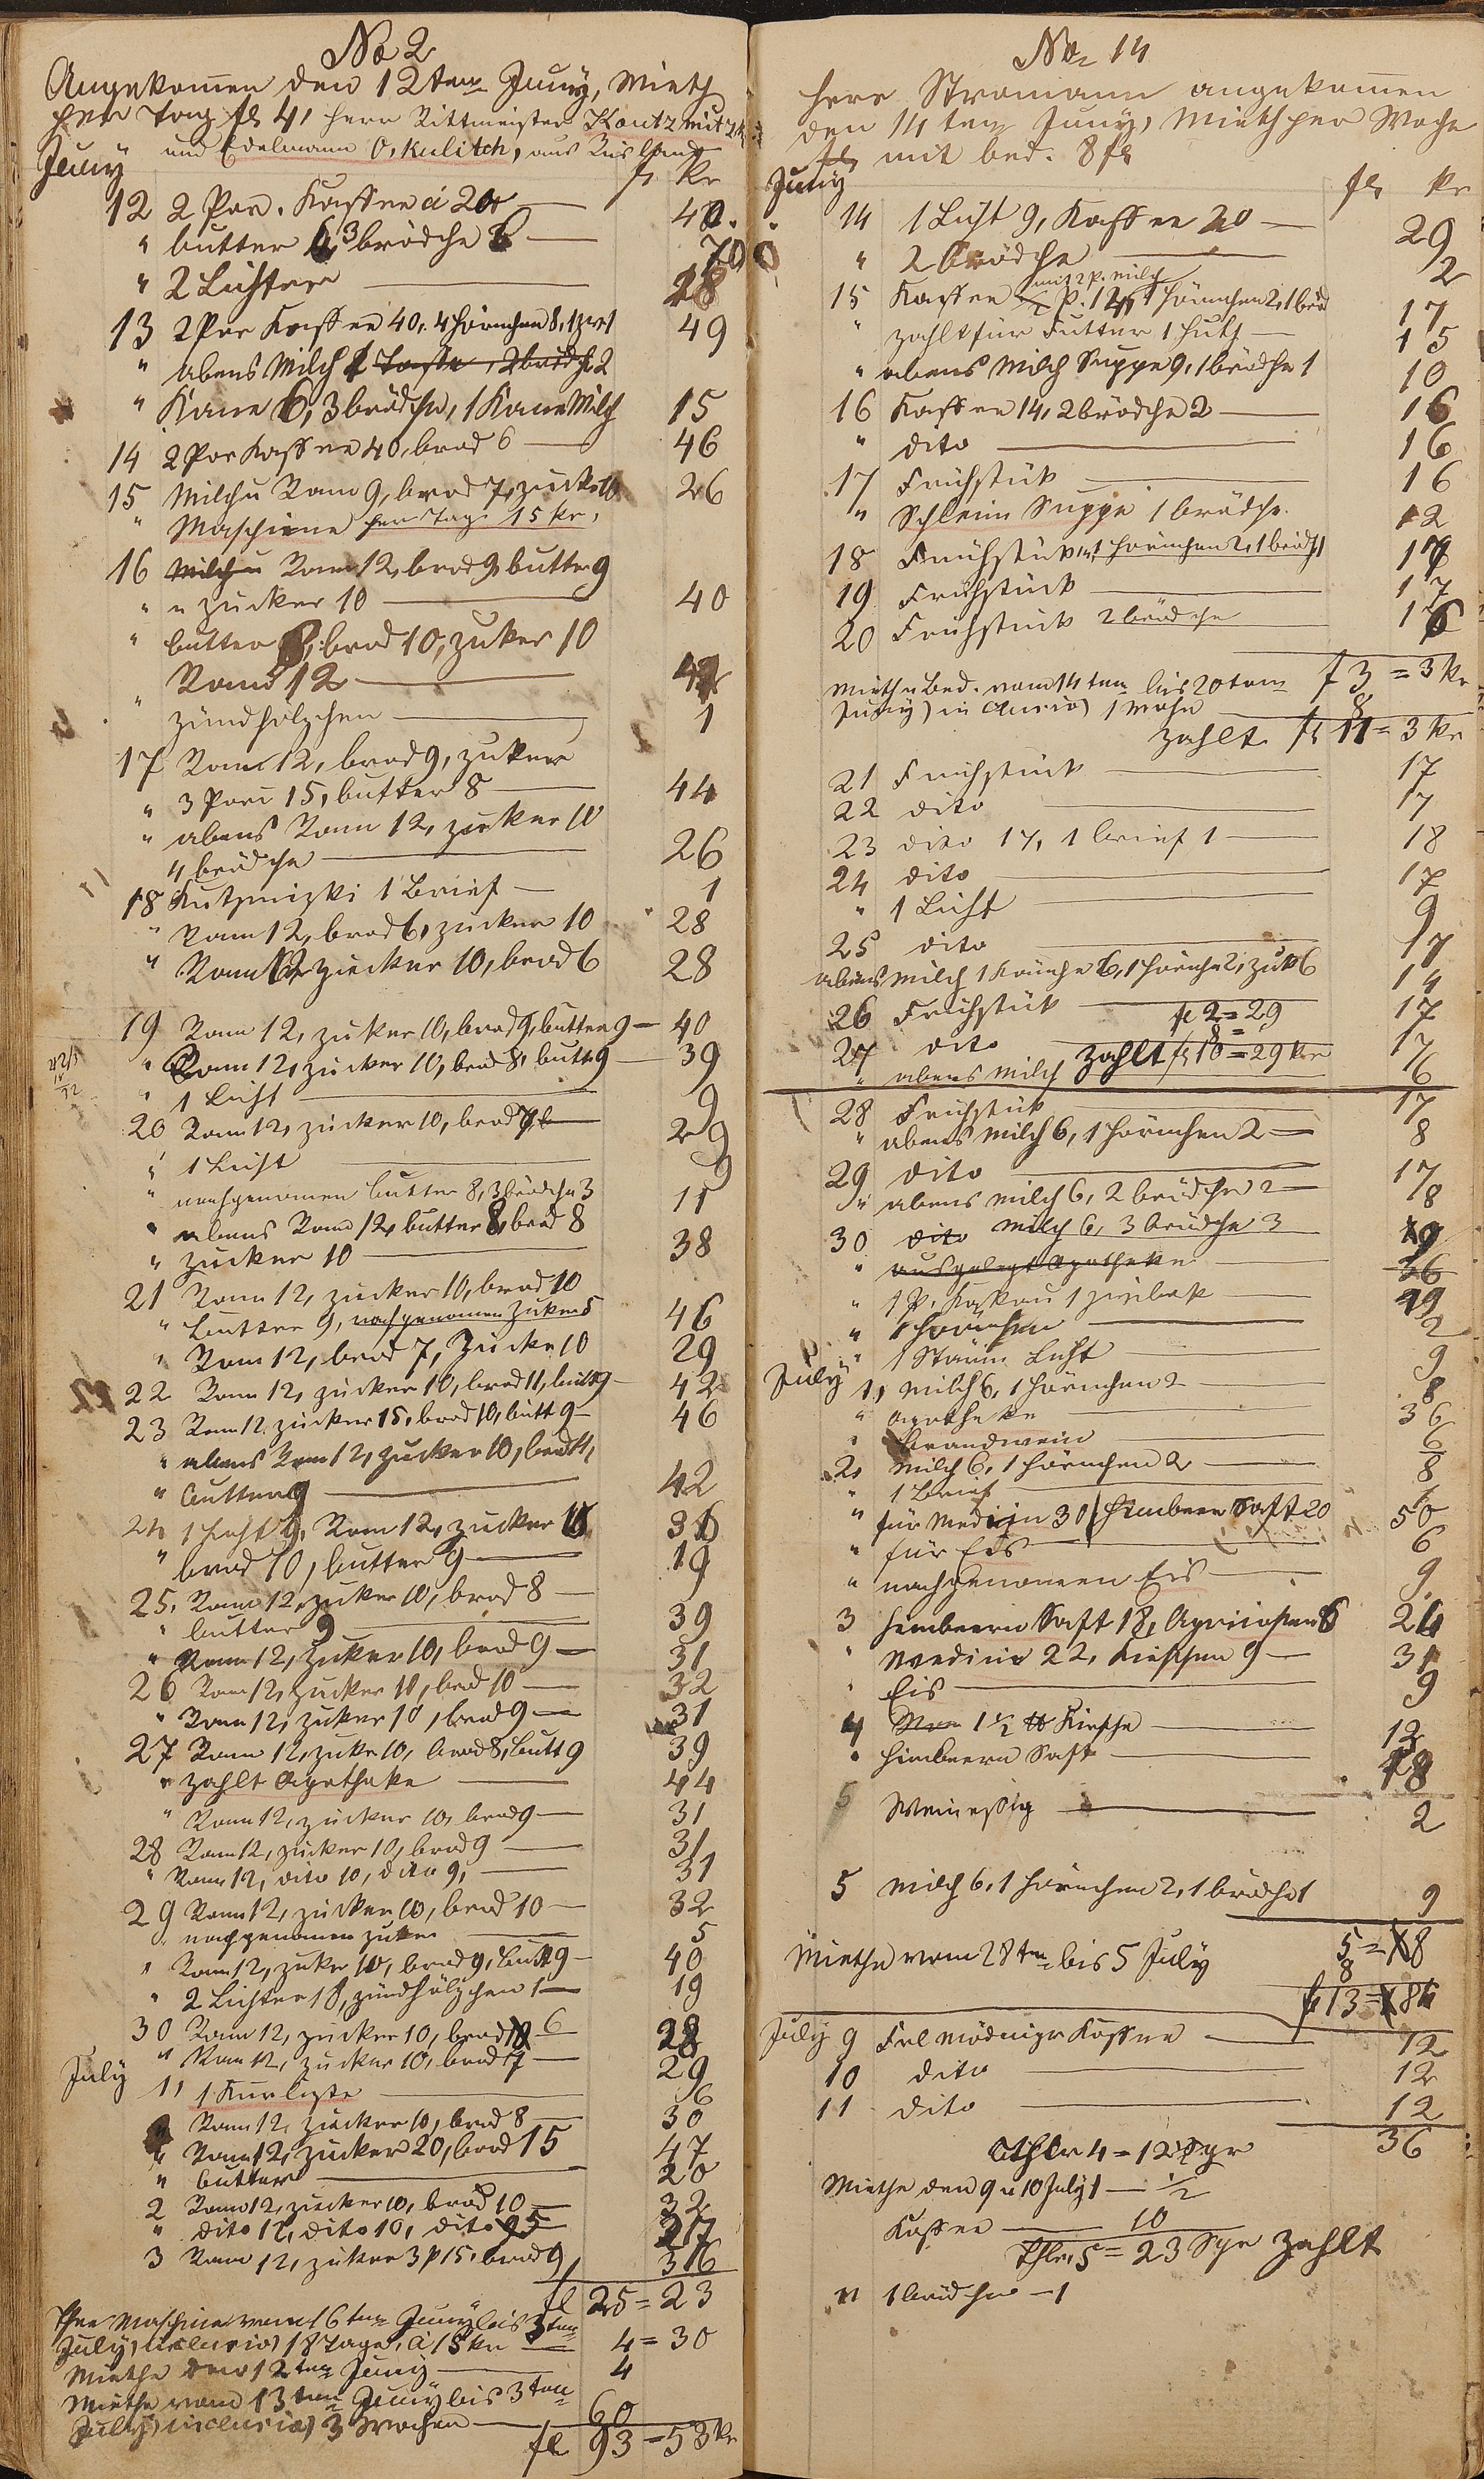 No 2
Angekomen den 12ten Juny, Mieth
per Tag fl 4, Herr Rittmeister Kautz mit
und Edelmann O, Kulitch, aus Rusland
Juny fl kr
12 2 Por. Kaffee á 20 — 40
" butter 6 3 brödche
" 2 Lichter — 18
13 2 Por Kaffee 40, 4 Hörnchen 8, 1 zw 1 49
" abens Milch 1 Tasse, 2 brödch 2
" Kane 6, 3 brödche, 1 Kane Milch 15
14 2 Por Kaffee 40, brod 6 — 46
15 Milch u Ram 9, brod 7, zucker 10 26
" Maschiene per Tag 15 kr,
16 Milch u Ram 12, brod 9 butter 9
" u zucker 10 — 40
" butter 8, brod 10, zuker 10
Ram 12 —
" zündhölzchen — 1
17 Ram 12, brod 9, zuker
" 3 Por 15, butter 8 — 44
" abens Ram 12, zucker 10
4 brödche — 26
18 1 Brief — 1
" Ram 12, brod 6, zucker 10 28
" Ram 12 zucker 10, brod 6 28
19 Ram 12, zuker 10, brod 9, butter 9 — 40
" Ram 12, zucker 10, brod 8, butt 9 — 39
" 1 Licht — 9
20 Ram 12, zucker 10, brod 7 — 29
" 1 Licht — 9
" nachgenomen butter 8, 3 brödche 3 11
" abens Ram 12, butter 8, brod 8
" zucker 10 — 38
21 Ram 12, zucker 10, brod 10
" butter 9, nachgenomen zuker 5 46
" Ram 12, brod 7, Zucke 10 29
22 Ram 12, zucker 10, brod 11, butt 9 — 42
23 Ram 12, zucker 15, brod 10, butt 9 — 46
" abens Ram 12, zucker 10, brod 11,
" butter 9 — 42
24 1 Licht 9, Ram 12, zucker 10 31
" brod 10, butter 9 — 19
25, Ram 12, zuker 10, brod 8 —
" butter 9 — 39
" Ram 12, zuker 10, brod 9 — 31
26 Ram 12, zucker 10, brod 10 — 32
" Ram 12, zuker 10, brod 9 — 31
27 Ram 12, zuke 10, brod 8, butt 9 39
" zahlt Apotheke — 44
" Ram 12, zucker 10, brod 9 — 31
28 Ram 12, zucker 10, brod 9 — 31
" Ram 12, dito 10, dito 9, — 31
29 Ram 12, zucker 10, brod 10 — 32
" nachgenomen zuker — 5
" Ram 12, zuker 10, brod 9, butt 9 — 40
" 2 Lichter 18, zündhölzchen 1 — 19
30 Ram 12, zucker 10, brod 6 28
" Ram 12, zucker 10, brod 7 — 29
July 1, 1 Kurliste — 6
Ram 12, zucker 10, brod 8 — 30
" Ram 12, zucker 20, brod 15 47
" butter — 20
2 Ram 12, zucker 10, brod 10 — 32
" dito 12, dito 10, dito 5 — 27
3 Ram 12, zuker 3 p 15, brod 9, 36
fl 25 = 23
Thee Maschiene vom 16ten Juny bis 3ten
July, inclusive) 18 Tage, á 15 kr — 4 = 30
Miethe den 12ten Juny — 4
Miethe vom 13ten Juny bis 3ten
July) inclusive) 3 Wochen — 60
fl 93 = 53 kr
No 14
Herr Stromann angekomen
den 14ten Juny, Mieth per Woche
fl mit bed. 8 fl
Juny fl kr
14 1 Licht 9, Kaffee 20 — 29
" 2 brödche — 2
mit 2 p. Milch
15 Kaffee p. 14, 1 Hörnchen 2, 1 bröd 17
" zahlt für Futter 1 Huts — 15
" abens Milch Suppe 9, 1 brödche 1 10
16 Kaffee 14, 2 brödche 2 — 16
" dito — 16
17 Frühstük — 16
" Schleim Suppe 1 brödche. 12
18 Frühstük 14, 1 Hörnchen 2, 1 brödch 1 17
19 Frühstük — 17
20 Frühstük 2 brödche 16
Mieth u Bed. vom 14ten bis 20ten f 3 = 3 kr
Juny) inclusive) 1 Woche — 8
zahlt fl 11 = 3 kr
21 Frühstük — 17
22 dito — 17
23 dito 17, 1 brief 1 — 18
24 dito — 17
" 1 Licht — 9
25 dito — 17
abens Milch 1 kännche 6, 1 Hörnche 2, zuk 6 14
26 Frühstük — 17
fl 2 = 29
8 =
27 dito zahlt fl 10 = 29 kr 17
" abens Milch 6
28 Frühstük 17
" abens Milch 6, 1 Hörnchen 2 — 8
29 dito — 17
" abens Milch 6, 2 brödche 2 — 8
30 dito Milch 6, 3 brödche 3 9
" ausgelegt Apotheke — 36
" 1 P. Kakau 1 zwibak — 19
" 1 Hörnchen — 2
" 1 Stearin Licht — 9
July 1, Milch 6, 1 Hörnchen 2 — 8
" Apotheke — 36
" brandwein — 6
2, Milch 6, 1 Hörnchen 2 — 8
" 1 Brief —
" für Medizin 30 Himbeer Saft 20 50
" für Eis — 6
" nachgenomen Eis — 9
3 Himbeern Saft 18, Apricosen 6 24
" Medicin 22, Kirschen 9 — 31
" Eis — 9
4 1 1/2 ℔ Kirsche — 12
" Himbeern Saft — 18
5 Weinessig — 2
5 Milch 6, 1 Hörnchen 2, 1 brödche 1 9
Miethe vom 28ten bis 5 July 5 = 8
8
fl 13 = 8
July 9 Kaffee — 12
10 dito — 12
11 dito — 12
36
Thlr 4 = 12 Sgr
Miethe den 9 u 10 July 1 — 1/2
Kaffee — 10
Thlr, 5 = 23 Sgr zahlt
11 1 brödche — 1